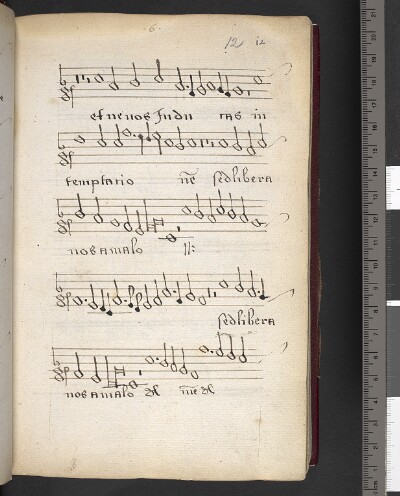 12 12
et ne nos Indu cas in
temptatio nē sed libera
nos a malo ij:
sed libera
nos a malo